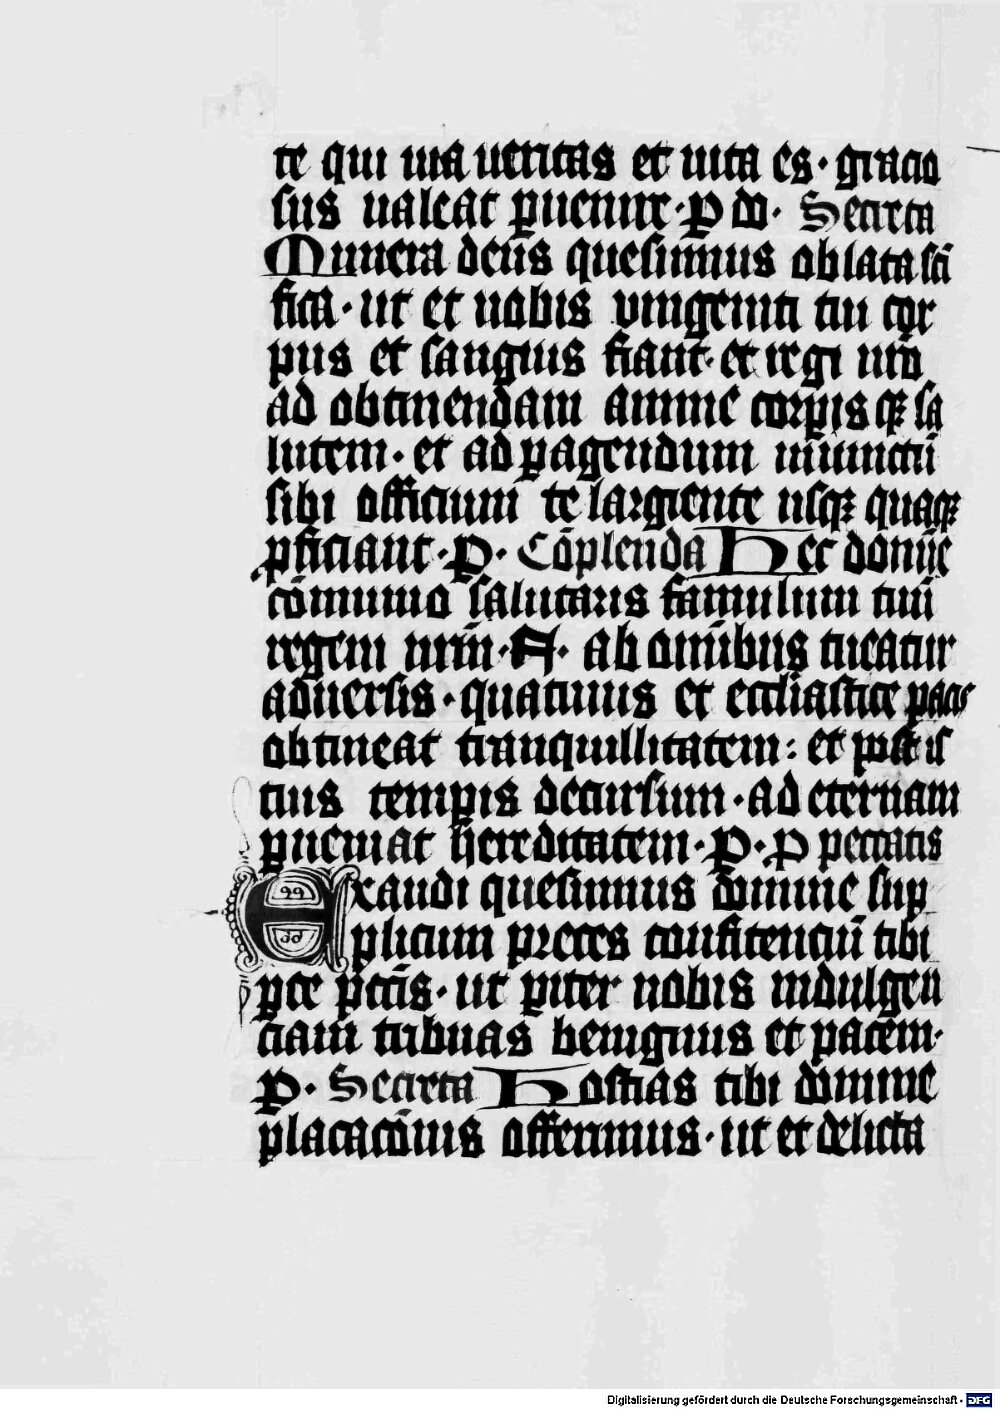 te qui uia ueritas et uita es · gracio
sus ualeat ꝑuenire · P do · Secreta
Munera deus quesumus oblata scī
fica · ut et nobis vnigeniti tui cor
pus et sanguis fiant · et regi nr̄o
ad obtinendam anime corpis qꝫ sa
lutem · et ad ꝑagendum iniunctū
sibi officium te largiente usqꝫ quaqꝫ
ꝓficiant · P · Cōplenda Hec domīe
cōmunio salutaris famulum tuū
regem nrm̄ · N · ab omībus tueatur
aduersis · quatinus et eccl̄iastice pacis
obtineat tranquillitatem : et post is
tius tempis decursum · ad eternam
ꝑueniat hereditatem · P · P peccatis
Exaudi quesumus domine sup
plicum preces confitenciū tibi
ꝑce pctīs · ut ꝑiter nobis indulgen
ciam tribuas benignus et pacem ·
P · Secreta Hostias tibi domine
placacōnis offerimus · ut et delicta
Digitalisierung gefördert durch die Deutsche Forschungsgemeinschaft - DFG